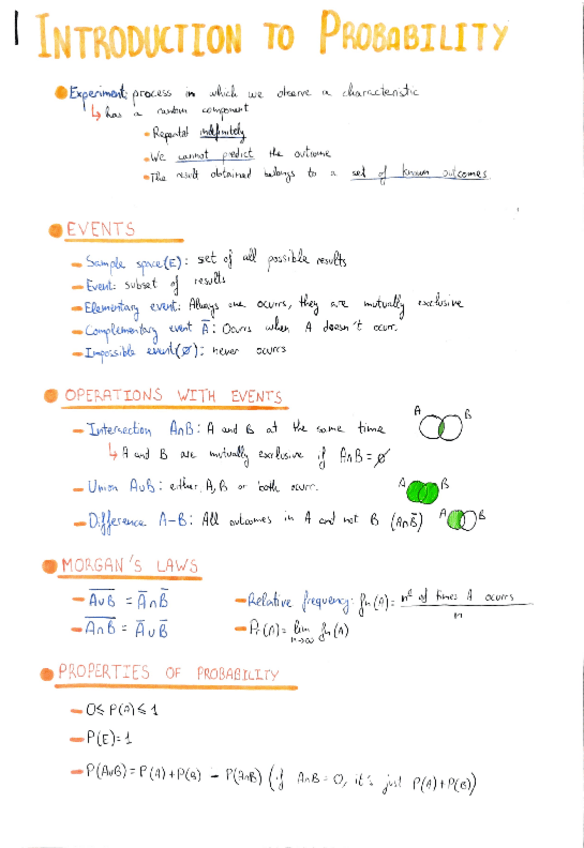 INTRODUCTION TO PROBABILITY
Experiment: process in which we observe a characteristic
↳ has a random component
- Repeated indefinitely
- We cannot predict the outcome
- The result obtained belongs to a set of known outcomes
EVENTS
- Sample space(E): set of all possible results
- Event: subset of results
- Elementary event: Always one ocurrs, they are mutually exclusive
- Complementary event A̅: Ocurrs when A doesn't ocurr.
- Impossible event(∅): never ocurrs
OPERATIONS WITH EVENTS
- Intersection A∩B: A and B at the same time
A B
↳ A and B are mutually exclusive if A∩B=∅
- Union A∪B: either, A, B or both ocurr.
A B
- Difference A-B: All outcomes in A and not B (A∩B̅)
A B
MORGAN'S LAWS
- \overline{A∪B} = A̅∩B̅
- \overline{A∩B} = A̅∪B̅
- Relative frequency: fn(A) = nº of times A ocurrs / n
- Pr(A) = lim n→∞ fn(A)
PROPERTIES OF PROBABILITY
- 0≤P(A)≤1
- P(E)=1
- P(A∪B)=P(A)+P(B) - P(A∩B) (if A∩B=0, it's just P(A)+P(B))